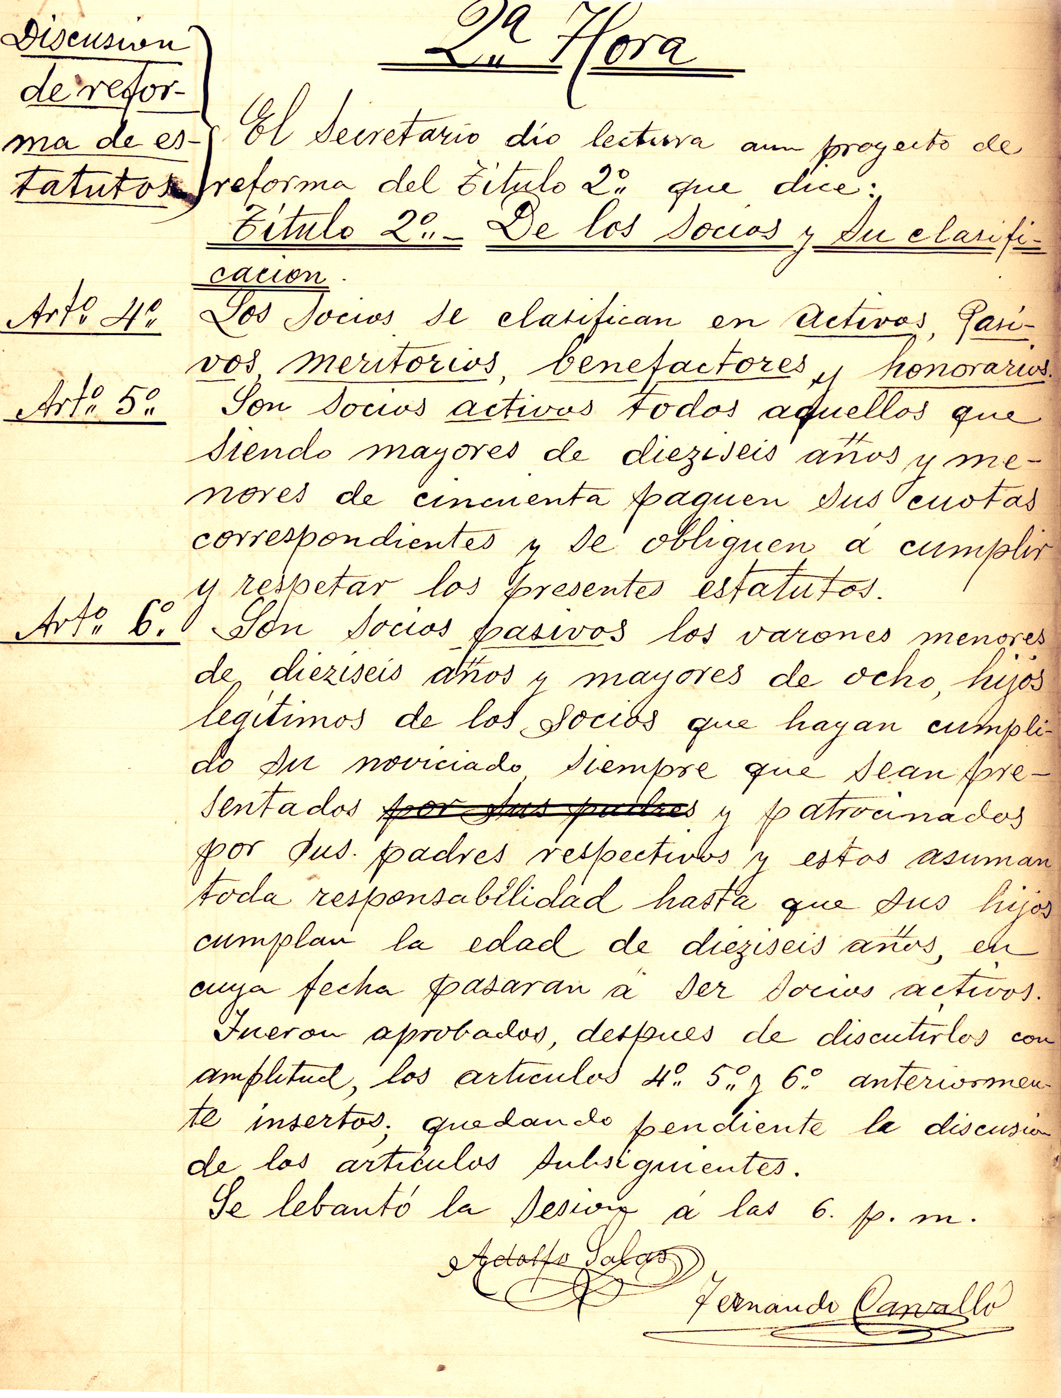 2ª Hora
Discusion
de refor-
ma de es-
tatutos
El Secretario dio lectura aun proyecto de
reforma del Título 2º que dice:
Título 2º.- De los Socios y Su clasifi-
cacion.
Artº 4º
Los Socios se clasifican en activos, Pasi-
vos, meritorios, benefactores, y honorarios.
Artº 5º
Son socios activos todos aquellos que
siendo mayores de dieziseis años y me-
nores de cincuenta paguen sus cuotas
correspondientes y se obliguen á cumplir
y respetar los presentes estatutos.
Artº 6º
Son socios pasivos los varones menores
de dieziseis años y mayores de ocho, hijos
legítimos de los socios que hayan cumpli-
do su noviciado, siempre que sean pre-
sentados por sus padres y patrocinados
por sus padres respectivos y estos asuman
toda responsabilidad hasta que sus hijos
cumplan la edad de dieziseis años, en
cuya fecha pasaran á ser socios activos.
Fueron aprobados, despues de discutirlos con
amplitud, los articulos 4º 5º y 6º anteriormen-
te insertos; quedando pendiente la discusion
de los artículos subsiguientes.
Se lebantó la sesion á las 6. p. m.
Adolfo Salas
Fernando Carvallo